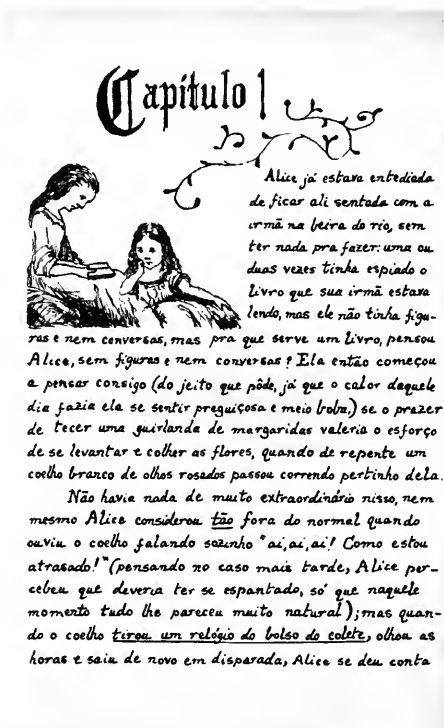 Capitulo 1
Alice já estava entediada
de ficar ali sentada com a
irmã na beira do rio, sem
ter nada pra fazer: uma ou
duas vezes tinha espiado o
livro que sua irmã estava
lendo, mas ele não tinha figu-
ras e nem conversas, mas pra que serve um livro, pensou
Alice, sem figuras e nem conversas? Ela então começou
a pensar consigo (do jeito que pôde, já que o calor daquele
dia fazia ela se sentir preguiçosa e meio boba,) se o prazer
de tecer uma guirlanda de margaridas valeria o esforço
de se levantar e colher as flores, quando de repente um
coelho branco de olhos rosados passou correndo pertinho dela.
Não havia nada de muito extraordinário nisso, nem
mesmo Alice considerou tão fora do normal quando
ouviu o coelho falando sozinho "ai, ai, ai! Como estou
atrasado!" (pensando no caso mais tarde, Alice per-
cebeu que deveria ter se espantado, só que naquele
momento tudo lhe pareceu muito natural); mas quan-
do o coelho tirou um relógio do bolso do colete, olhou as
horas e saiu de novo em disparada, Alice se deu conta